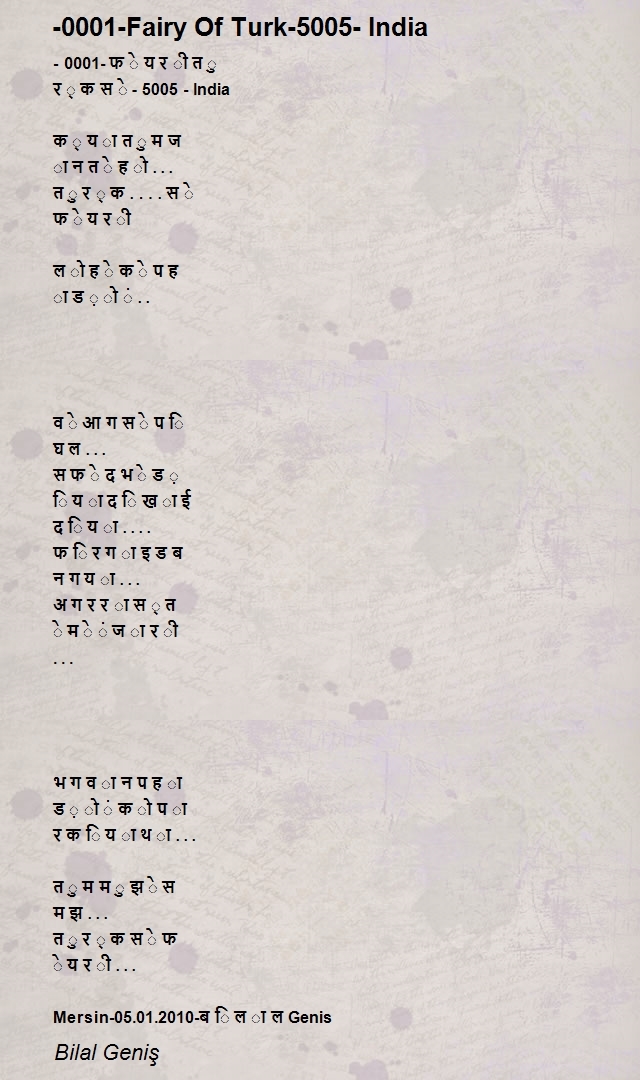 -0001-Fairy Of Turk-5005- India
- 0001- फ े य र ी त ु
र ् क स े - 5005 - India
क ् य ा त ु म ज
ा न त े ह ो . . .
त ु र ् क . . . . स े
फ े य र ी
ल ो ह े क े प ह
ा ड ़ ो ं . .
व े आ ग स े प ि
घ ल . . .
स फ े द भ े ड ़
ि य ा द ि ख ा ई
द ि य ा . . . .
फ ि र ग ा इ ड ब
न ग य ा . . .
अ ग र र ा स ् त
े म े ं ज ा र ी
. . .
भ ग व ा न प ह ा
ड ़ ो ं क ो प ा
र क ि य ा थ ा . . .
त ु म म ु झ े स
म झ . . .
त ु र ् क स े फ
े य र ी . . .
Mersin-05.01.2010-ब ि ल ा ल Genis
Bilal Geniş